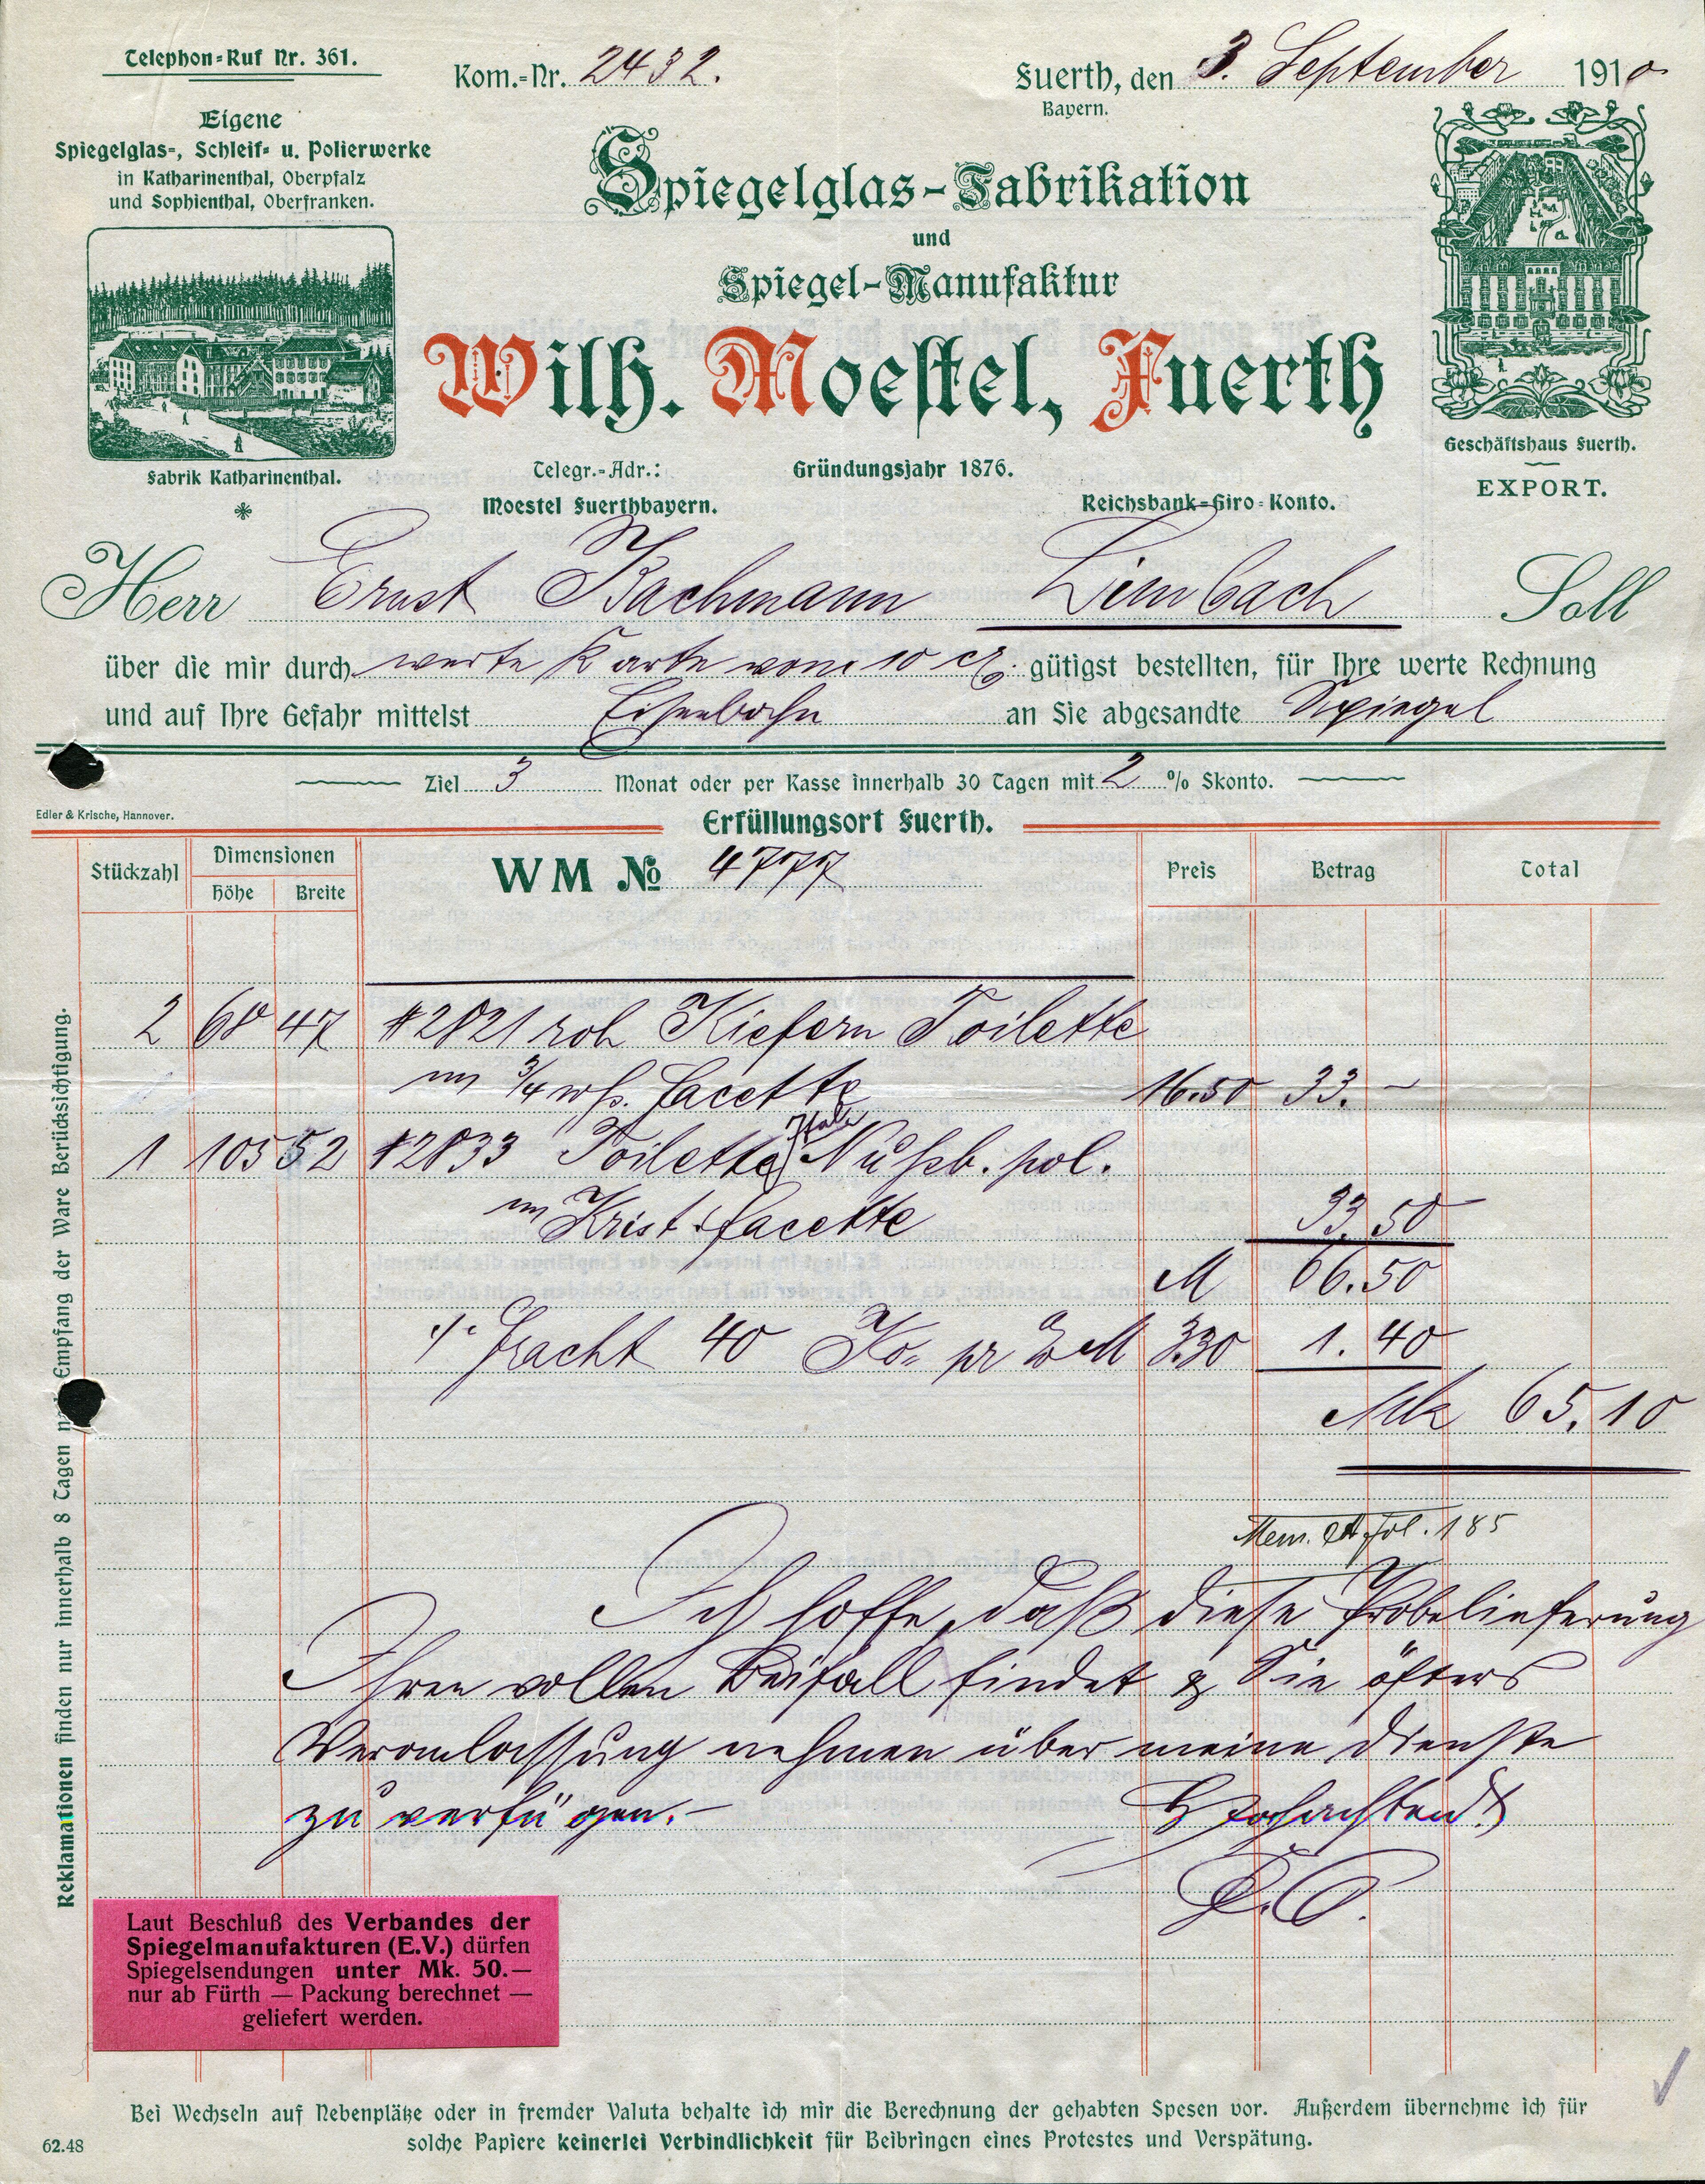 Telephon-Ruf Nr. 361.
Kom.-Nr. 2432.
Fuerth, den 3. September 1910
Bayern.
Eigene
Spiegelglas-, Schleif- u. Polierwerke
in Katharinenthal, Oberpfalz
und Sophienthal, Oberfranken.
Spiegelglas-Fabrikation
und
Spiegel-Manufaktur
Wilh. Moestel, Fuerth
Fabrik Katharinenthal.
Telegr.-Adr.:
Moestel Fuerthbayern.
Gründungsjahr 1876.
Reichsbank-Giro-Konto.
Geschäftshaus Fuerth.
EXPORT.
Herr Ernst Bachmann Limbach Soll
über die mir durch werte Karte vom 10 cr. gütigst bestellten, für Ihre werte Rechnung
und auf Ihre Gefahr mittelst Eisenbahn an Sie abgesandte Spiegel
Ziel 3 Monat oder per Kasse innerhalb 30 Tagen mit 2 % Skonto.
Edler & Krische, Hannover.
Erfüllungsort Fuerth.
Stückzahl Dimensionen Höhe Breite WM No 4777 Preis Betrag Total
2 68 47 #2821 roh Kiefern Toilette
m 3/4 wß. Facette 16.50 33.-
1 105 52 #2833 Toilette Ital. Nußb. pol.
m Krist. facette 33.50
M 66.50
./. Fracht 40 Ko. pr M 3.30 1.40
Mk 65.10
Mem. fol. 185
Ich hoffe, daß diese Probelieferung
Ihren vollen Beifall findet & Sie öfters
Veranlassung nehmen über meine Dienste
zu verfügen.-
Hochachtend
Reklamationen finden nur innerhalb 8 Tagen nach Empfang der Ware Berücksichtigung.
Laut Beschluß des Verbandes der
Spiegelmanufakturen (E.V.) dürfen
Spiegelsendungen unter Mk. 50.—
nur ab Fürth — Packung berechnet —
geliefert werden.
Bei Wechseln auf Nebenplätze oder in fremder Valuta behalte ich mir die Berechnung der gehabten Spesen vor. Außerdem übernehme ich für
solche Papiere keinerlei Verbindlichkeit für Beibringen eines Protestes und Verspätung.
62.48